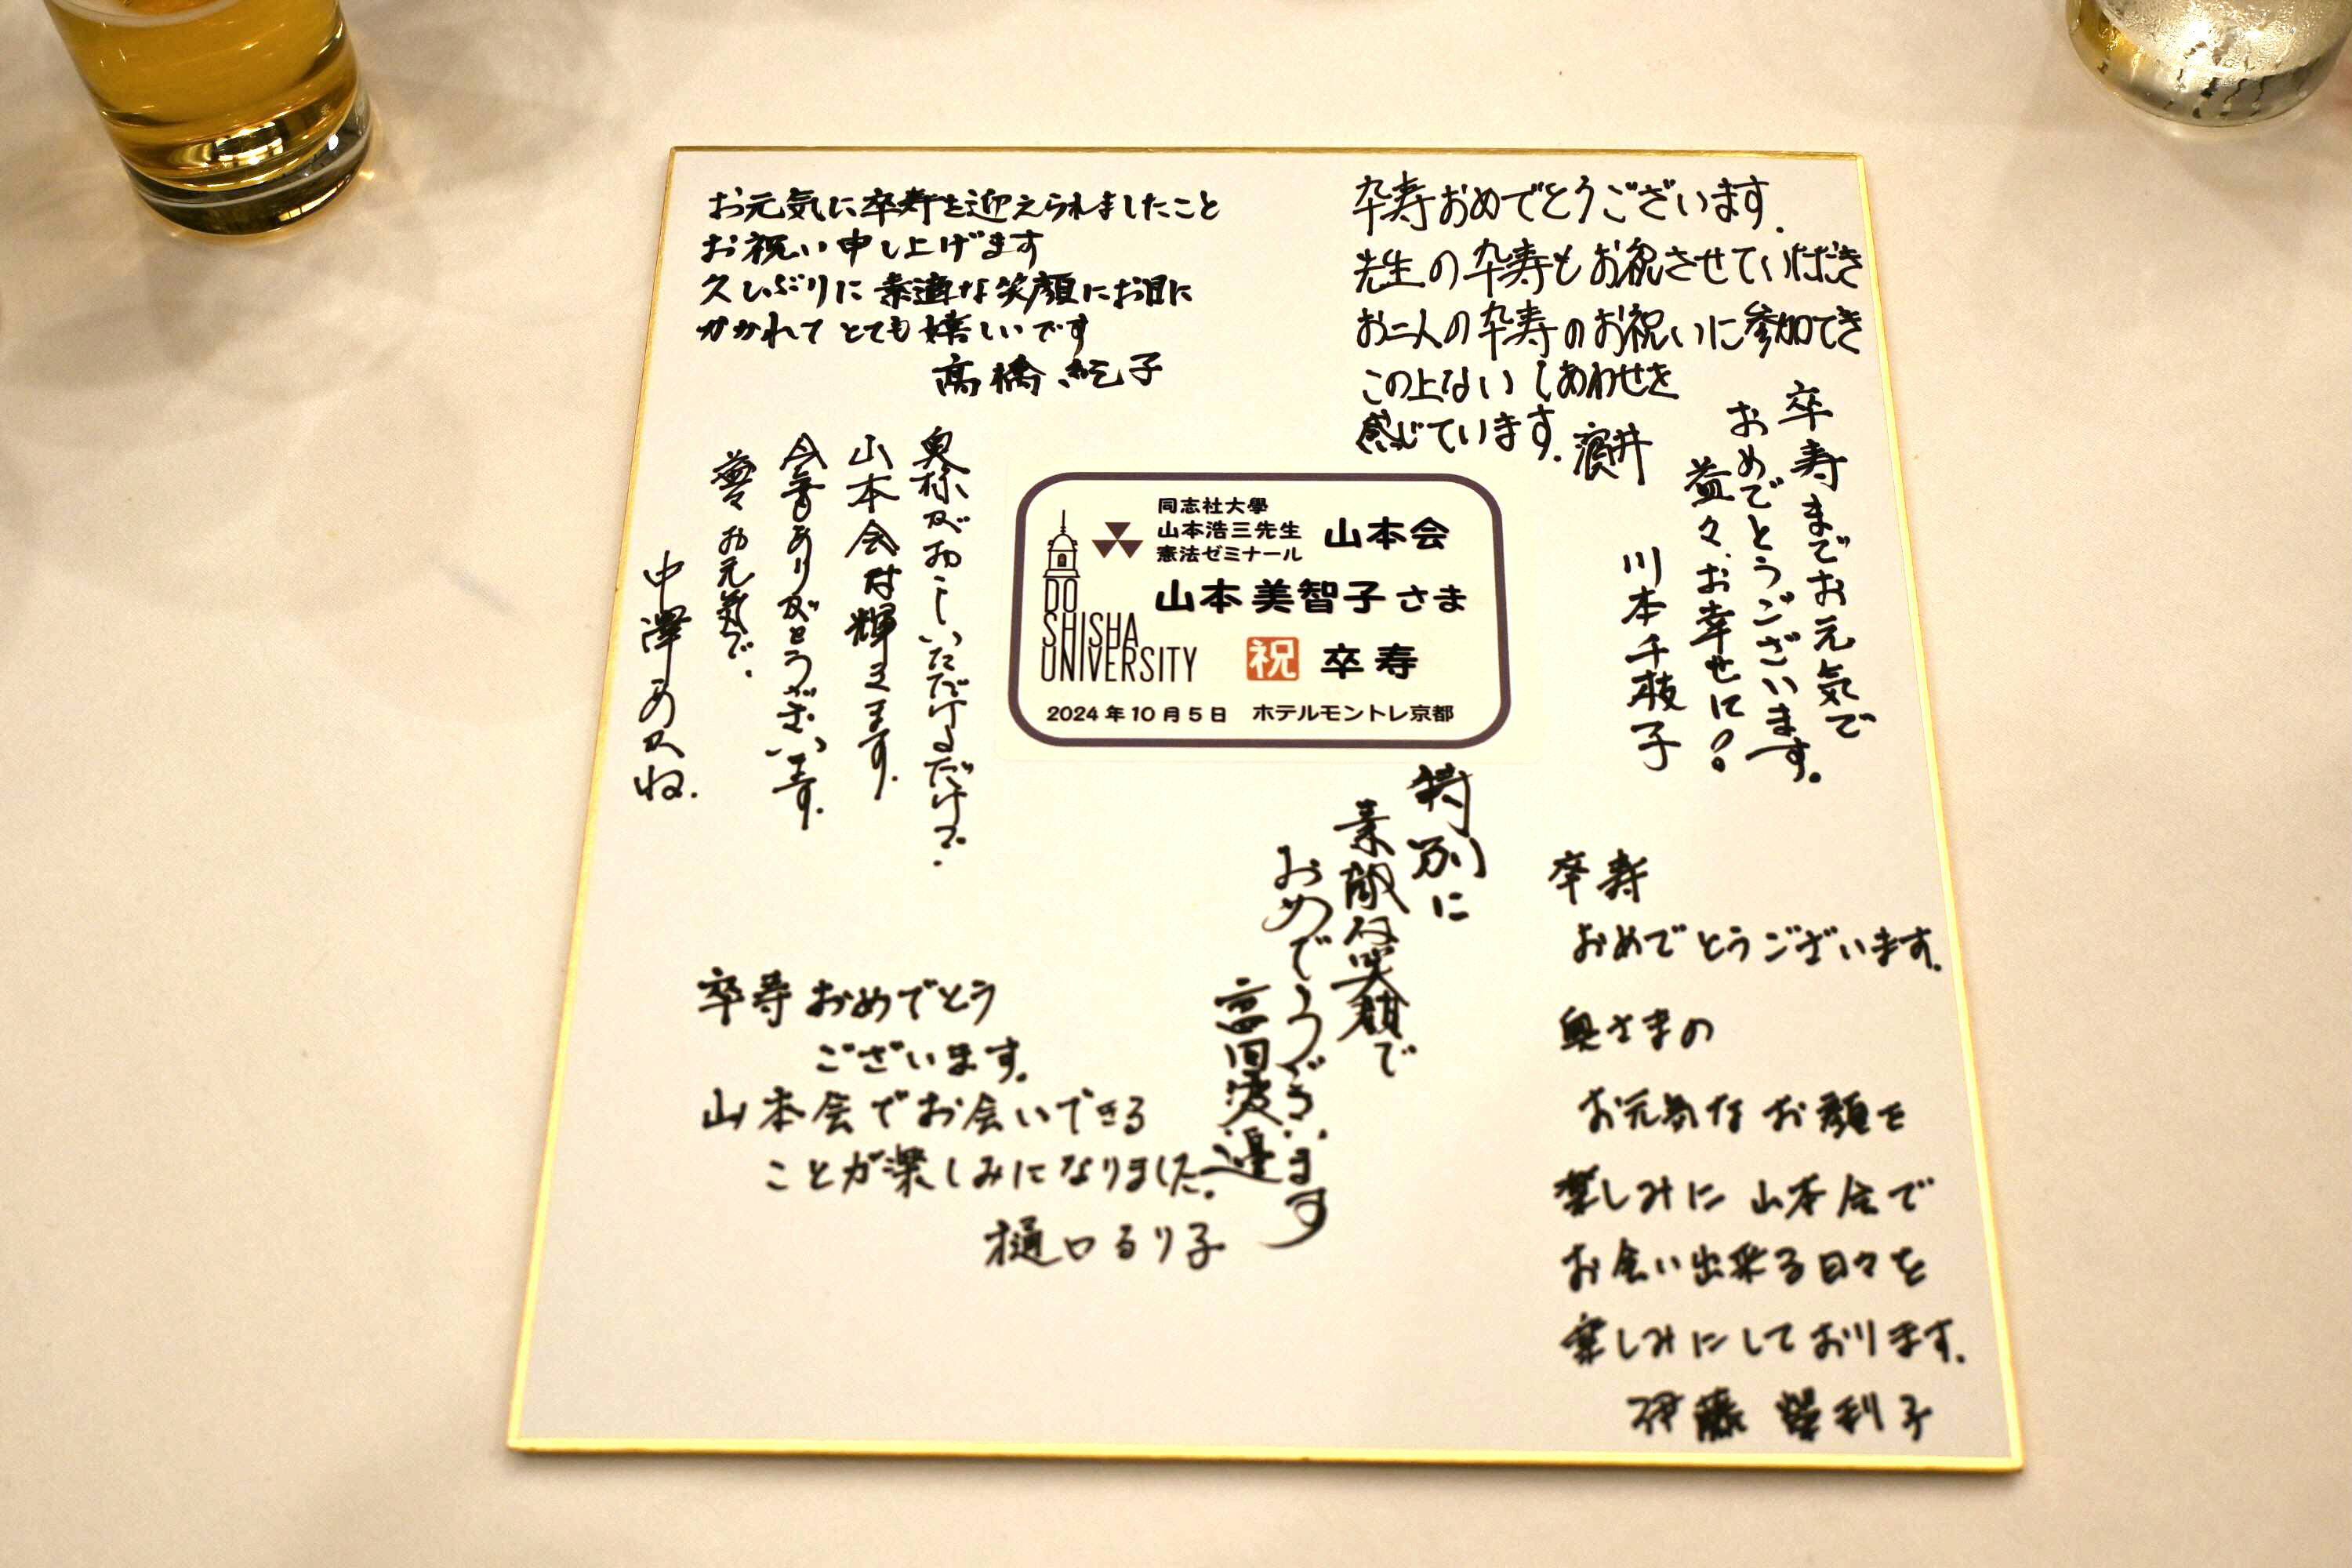 お元気に卒寿を迎えられましたこと
お祝い申し上げます
久しぶりに素適な笑顔にお目に
かかれて とても嬉しいです
高橋 紀子
卒寿おめでとうございます.
先生の卒寿もお祝させていただき
お二人の卒寿のお祝いに参加でき
この上ない しあわせを
感じています. 濱井
卒寿までお元気で
おめでとうございます。
益々、お幸せに!
川本千枝子
奥様がおこしいただけるだけで.
山本会は輝きます.
今年もありがとうございます.
益々お元気で.
中澤あかね.
同志社大學
山本浩三先生
憲法ゼミナール
山本会
山本美智子さま
祝 卒寿
DO
SHISHA
UNIVERSITY
2024年10月5日 ホテルモントレ京都
特別に
素敵な笑顔で
おめでとうございます
高田渡邊
卒寿おめでとう
ございます.
山本会でお会いできる
ことが楽しみになりました.
樋口るり子
卒寿
おめでとうございます.
奥さまの
お元気なお顔を
楽しみに 山本会で
お会い出来る日々を
楽しみにしております.
伊藤 利子